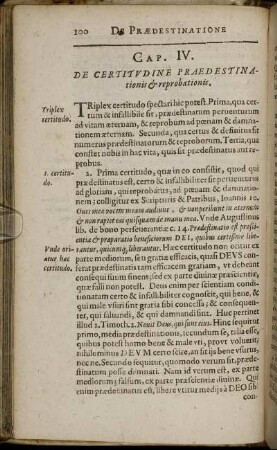 100 DE PRÆDESTINATIONE
CAP. IV.
DE CERTITVDINE PRAEDESTINA-
tionis & reprobationis.
Triplex certitudo.
TRiplex certitudo spectari hic potest. Prima, qua cer-
tum & infallibile sit, prædestinatum perventurum
ad vitam æternam, & reprobum ad pœnam & damna-
tionem æternam. Secunda, qua certus & definitus sit
numerus prædestinatorum & reproborum. Tertia, qua
constet nobis in hac vita, quis sit prædestinatus aut re-
probus.
1. certitu-
do.
2. Prima certitudo, quæ in eo consistit, quod qui
prædestinatus est, certo & infallibiliter sit perventurus
ad gloriam, qui reprobatus, ad pœnam & damnatio-
nem; colligitur ex Scripturis & Patribus, Ioannis 10.
Oves meæ vocem meam audiunt, & non peribunt in æternum
& non rapiet eas quisquam de manu mea. Vnde Augustinus
lib. de bono perseverantiæ c. 14. Prædestinatio est præsci-
entia & præparatio beneficiorum DEI, quibus certissime libe-
Vnde ori-
atur hac
certitudo.
rantur, quicunque liberantur. Hæc certitudo non oritur ex
parte mediorum, seu gratiæ efficacis, quasi DEVS confe-
rat prædestinatis tam efficacem gratiam, vt debeant
certo consequi finem; sed ex parte divinæ præscientiæ,
quæ falli non potest. Deus enim per scientiam condi-
tionatam certo & infallibiliter cognoscit, qui bene, &
qui male vsuri sint gratia sibi concessa, & consequenter,
qui salvandi sint, & qui damnandi. Huc pertinet
illud 2. Timoth. 2. Novit Deus, qui sunt eius. Hinc sequitur
primo, media prædestinationis, secundum se, talia esse,
quibus potest homo bene & male vti, prout voluerit;
nihilominus DEVM certo scire, an sit ijs bene vsurus,
nec ne. Secundo sequitur, quomodo verum sit, præde-
stinatum posse damnari. Nam id verum est, ex parte
mediorum; falsum, ex parte præscientiæ divinæ. Qui
enim prædestinatus est, libere vtitur medijs à DEO sibi
con-